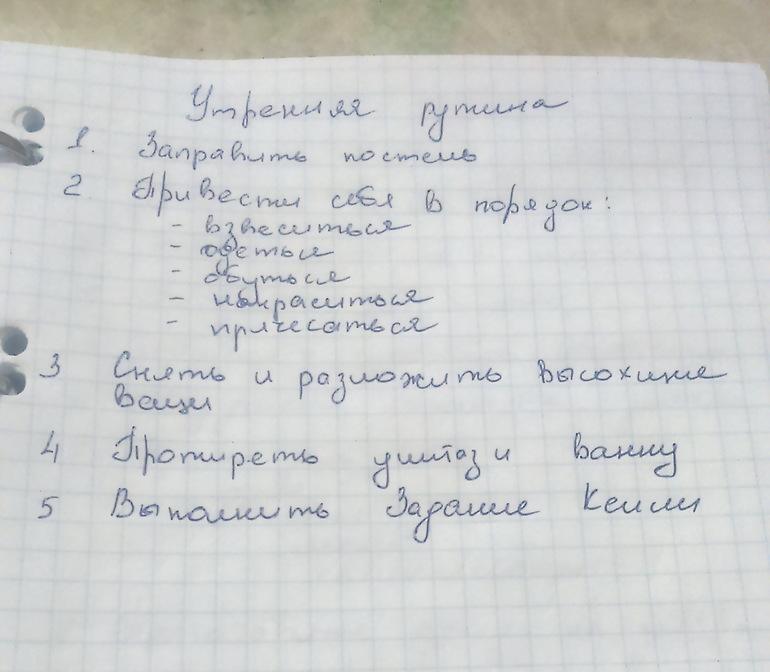 Утренняя рутина
1. Заправить постель
2. Привести себя в порядок:
- взвеситься
- одеться
- обуться
- накраситься
- причесаться
3 Снять и разложить высохшие
вещи
4 Протиреть унитаз и ванну
5 Выполнить Задание Келли